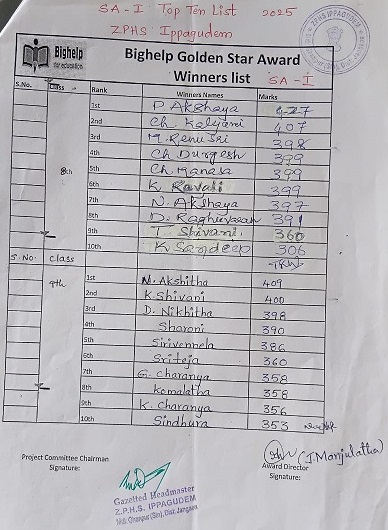 SA-I Top Ten List 2025
ZPHS Ippagudem
Bighelp
for education
Bighelp Golden Star Award
Winners list SA-I
S.No. Class Rank Winners Names Marks
1st P. Akshaya 427
2nd Ch Kalyani 407
3rd M. Renu Sri 398
4th Ch Durgesh 399
8th 5th Ch. Manasa 399
6th K Ravali 399
7th N. Akshaya 397
8th D. Raghuvaran 391
9th T. Shivani. 360
10th K Sandeep 306
S.No. Class
9th 1st N. Akshitha 409
2nd K. Shivani 400
3rd D. Nikhitha 398
4th Sharoni 390
5th Sirivennela 386
6th Sriteja 360
7th G. Charanya 358
8th Komalatha 358
9th K. Charanya 356
10th Sindhura 353
Project Committee Chairman
Signature:
(J Manjulatha)
Award Director
Signature:
Gazetted Headmaster
Z.P.H.S. IPPAGUDEM